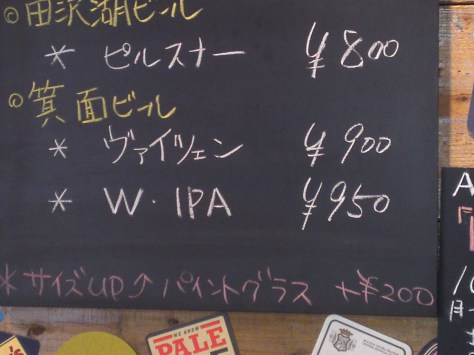 ◎田沢湖ビール
* ピルスナー ¥800
◎箕面ビール
* ヴァイツェン ¥900
* W・IPA ¥950
*サイズUP↑パイントグラス +¥200
PALE
A